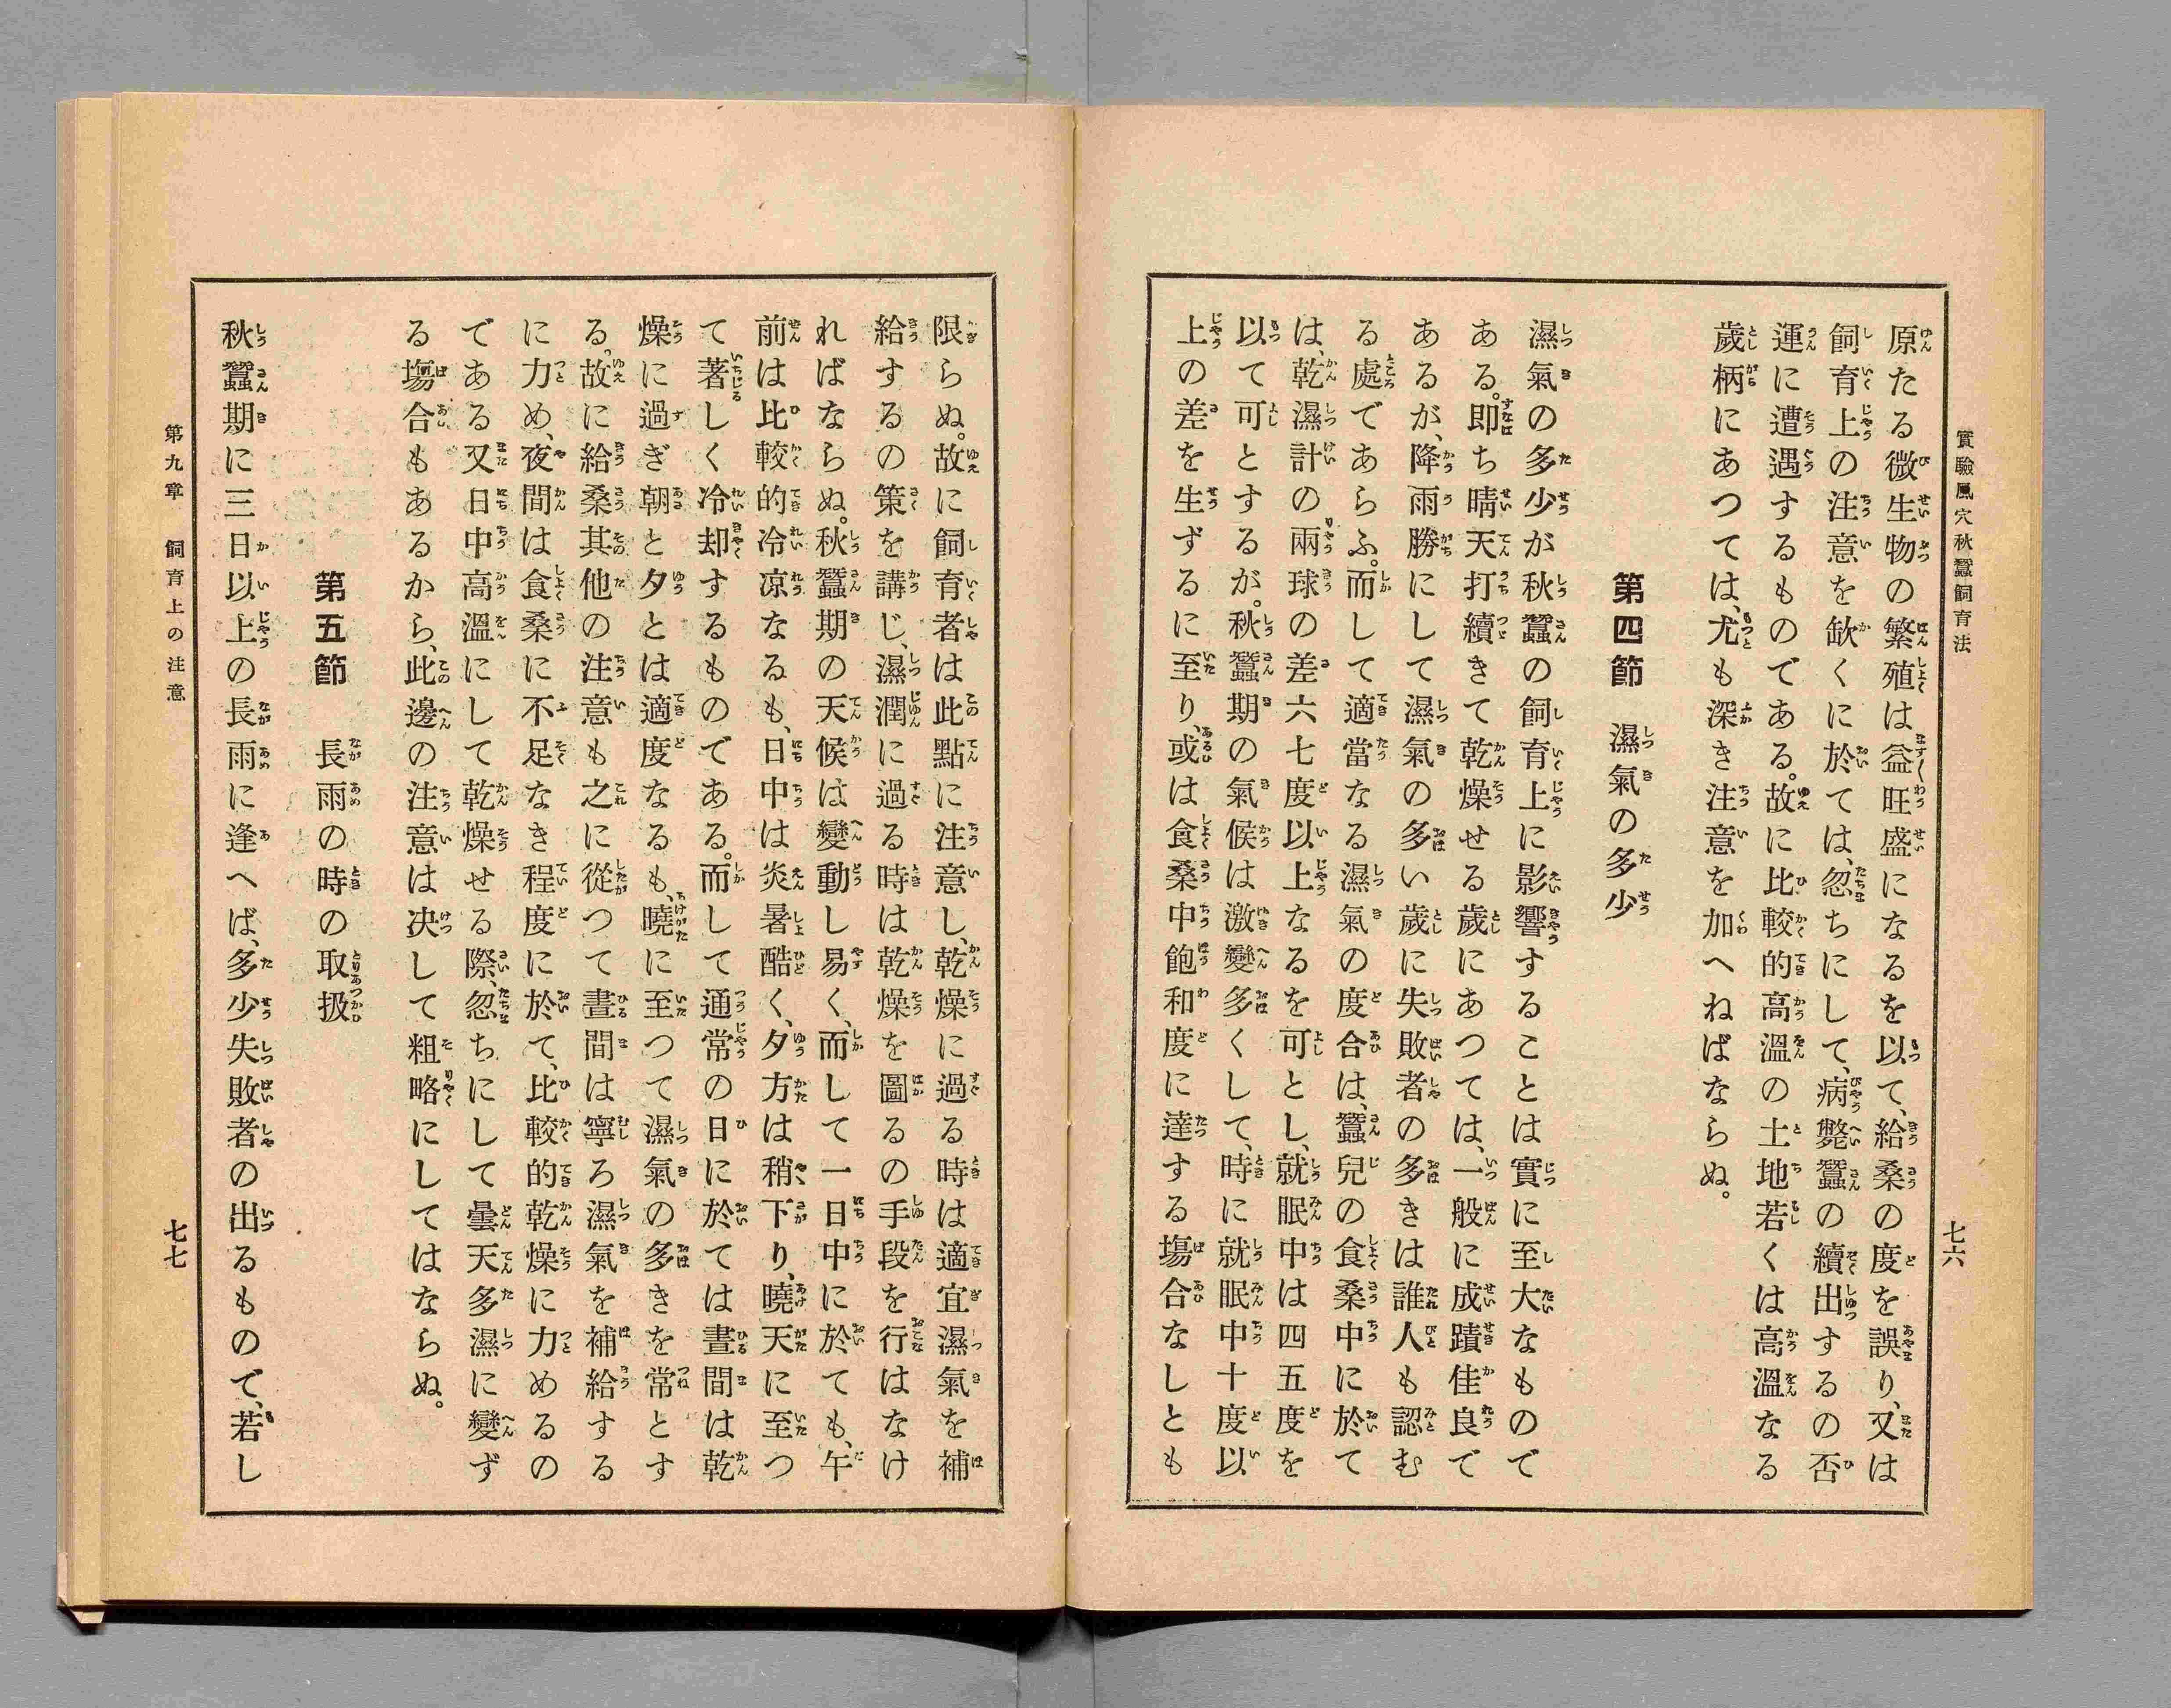 實驗風穴秋蠶飼育法
七六
原たる微生物の繁殖は益〻旺盛になるを以て、給桑の度を誤り、又は
飼育上の注意を缺くに於ては、忽ちにして、病斃蠶の續出するの否
運に遭遇するものである。故に比較的高溫の土地若くは高溫なる
歲柄にあつては、尤も深き注意を加へねばならぬ。
第四節 濕氣の多少
濕氣の多少が秋蠶の飼育上に影響することは實に至大なもので
ある。即ち晴天打續きて乾燥せる歲にあつては、一般に成蹟佳良で
あるが、降雨勝にして濕氣の多い歲に失敗者の多きは誰人も認む
る處であらふ。而して適當なる濕氣の度合は、蠶兒の食桑中に於て
は、乾濕計の兩球の差六七度以上なるを可とし、就眠中は四五度を
以て可とするが。秋蠶期の氣候は激變多くして、時に就眠中十度以
上の差を生ずるに至り、或は食桑中飽和度に達する塲合なしとも
限らぬ。故に飼育者は此點に注意し、乾燥に過る時は適宜濕氣を補
給するの策を講じ、濕潤に過る時は乾燥を圖るの手段を行はなけ
ればならぬ。秋蠶期の天候は變動し易く、而して一日中に於ても、午
前は比較的冷凉なるも、日中は炎暑酷く、夕方は稍下り、曉天に至つ
て著しく冷却するものである。而して通常の日に於ては晝間は乾
燥に過ぎ朝と夕とは適度なるも、曉に至つて濕氣の多きを常とす
る。故に給桑其他の注意も之に從つて晝間は寧ろ濕氣を補給する
に力め、夜間は食桑に不足なき程度に於て、比較的乾燥に力めるの
である又日中高溫にして乾燥せる際、忽ちにして曇天多濕に變ず
る塲合もあるから、此邊の注意は决して粗略にしてはならぬ。
第五節 長雨の時の取扱
秋蠶期に三日以上の長雨に逢へば、多少失敗者の出るもので、若し
第九章 飼育上の注意
七七